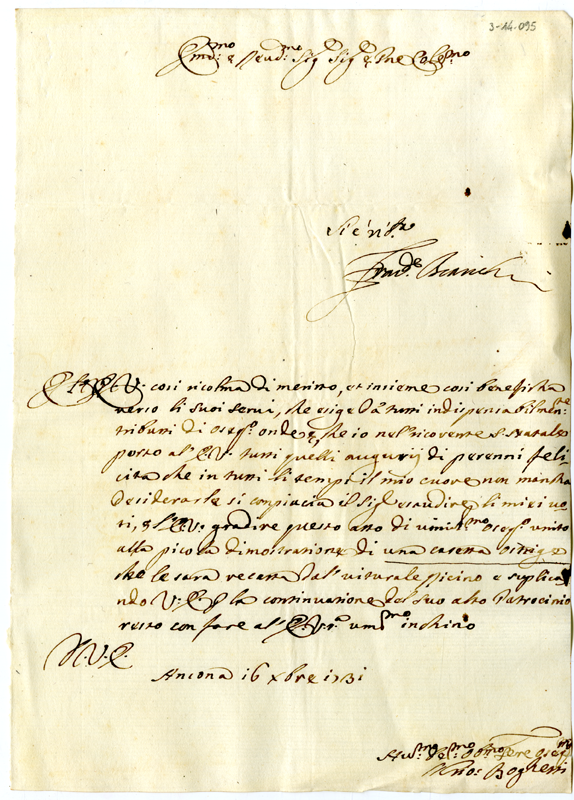 3-14.095
Em.mo e Reud.mo Sig.r Sig.r e Pne Col.mo
Bianchi
È l'E.V. cosi ricolma di meritto, et insieme cosi benefica
verso li suoi servi, che esige da tutti indispensabilmen.te
tributi di oseq.o onde è, che io nel ricorente S. Natale
porto al' E.V. tutti quelli augurij di perenni feli
cita che in tutti li tempi il mio cuore non mancha
desiderarle si conpiacia il Sig.re esaudire li miei uo
ti, e l'E.V. gradire questo atto di umilis.mo oseq.o unito
alla picola dimostratione di una casetta ostrige
che le sara recatta dal' viturale picino e suplica
ndo V.E. p la continuatione del suo alto Patrocinio
resto con fare al' E.V.ra um.mo inchino
D.V.E.
Ancona 16 xbre 1731
Hu.mo De.mo Ob.mo Sere ose.mo
Boghetti